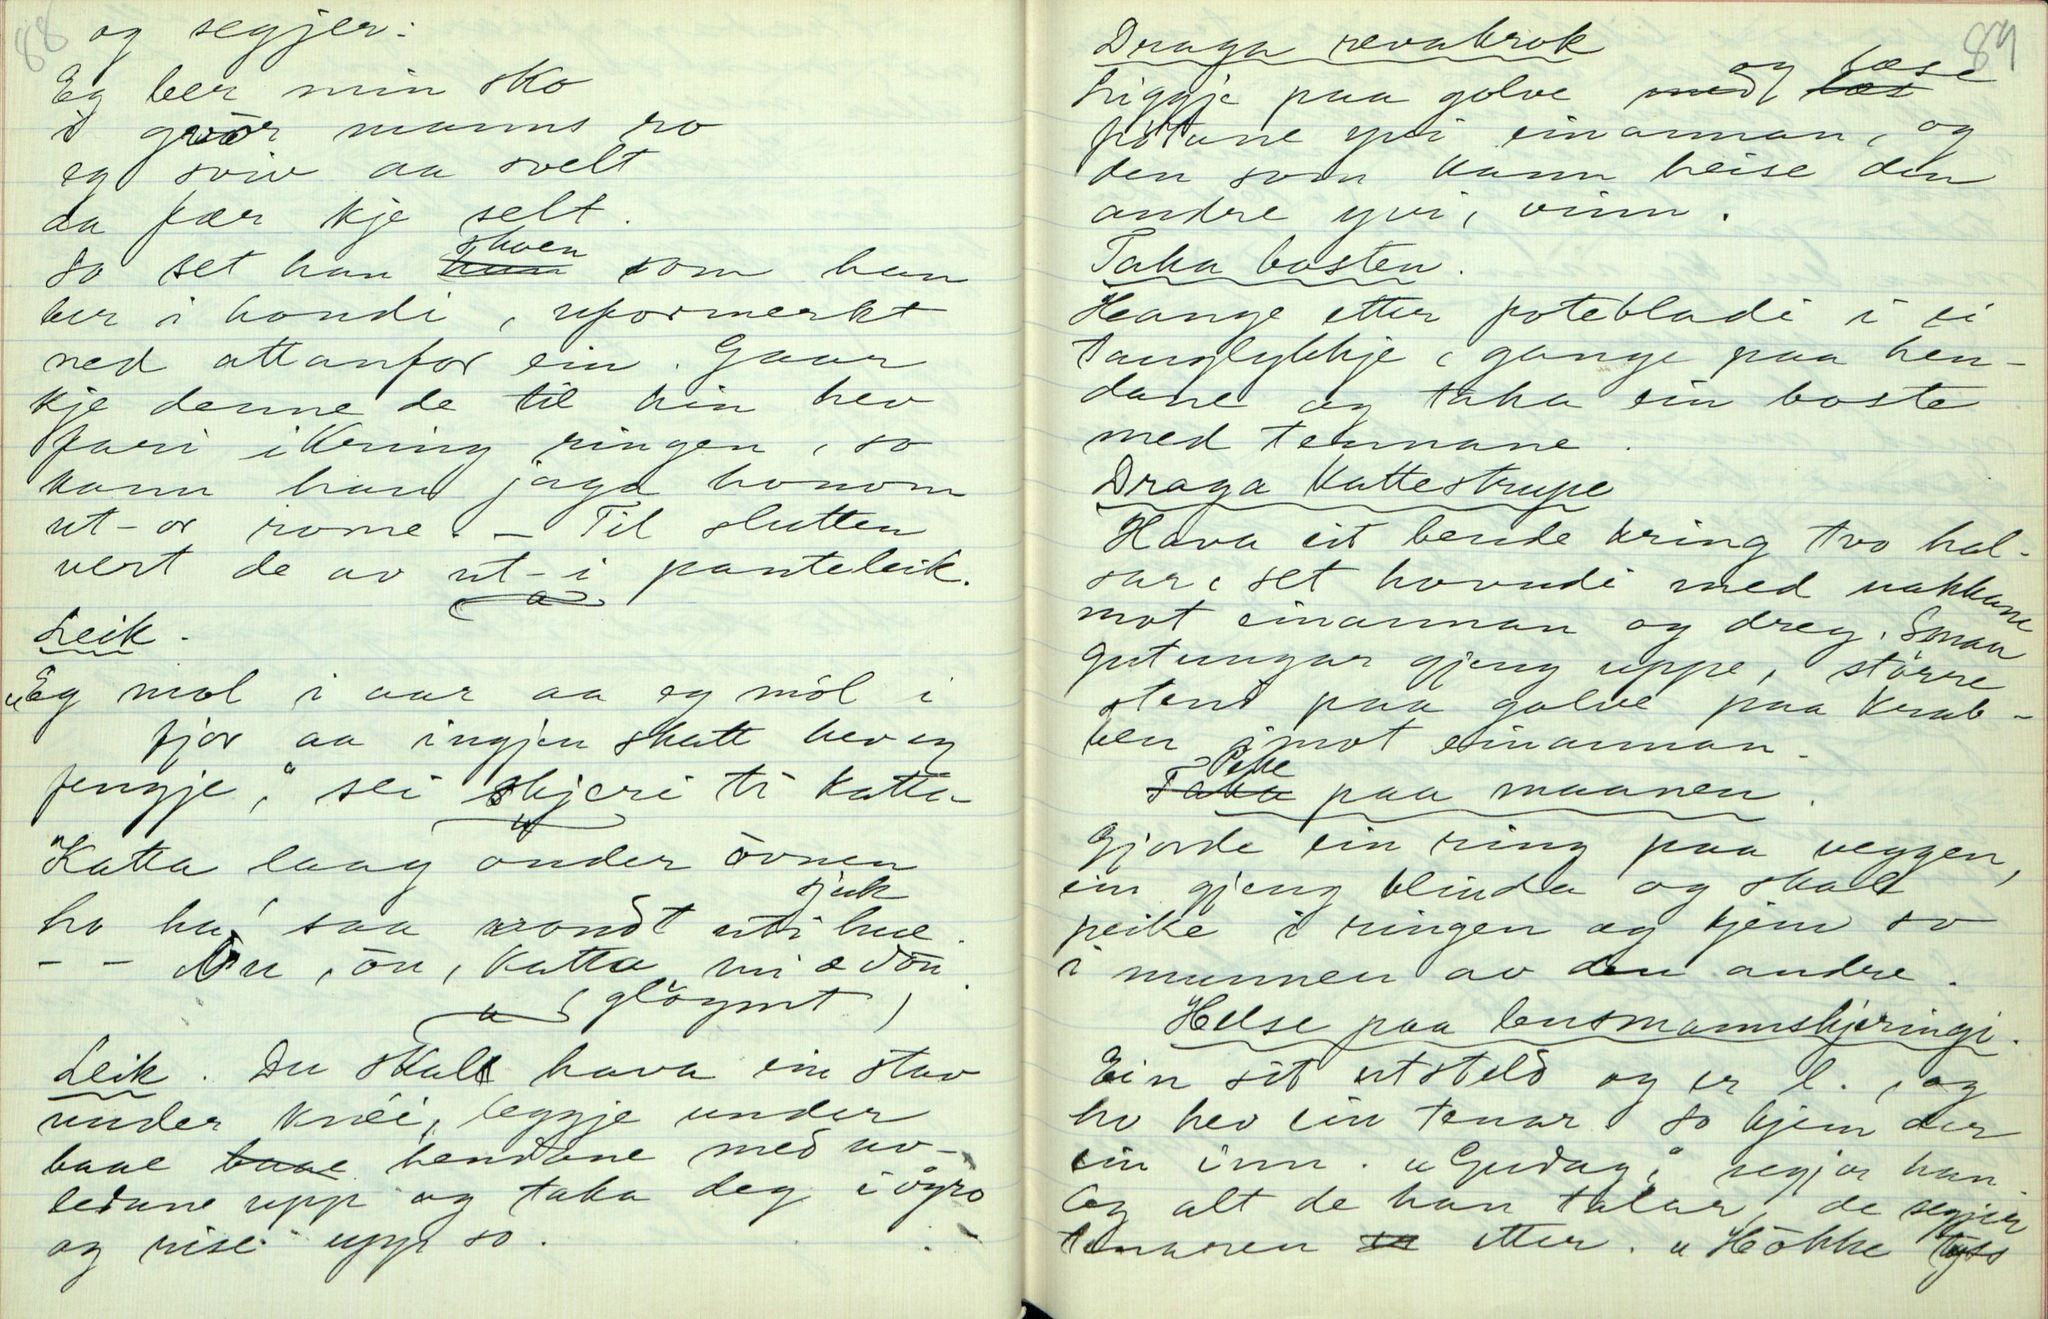 88
og segjer:
Eg ber min sko
i gvør manns ro
eg sviv aa svelt
da fær kje selt.
So set han skoen som han
ber i hondi, uformerkt
ned attanfor ein. Gaar
kje denne de til hin hev
fari ikring ringen, so
kann han jaga honom
ut-or rome. - Til slutten
vert de av ut-i panteleik.
Leik.
"Eg mol i aar aa eg mól i
fjor aa ingjen skatt hev eg
fengje," sei skjeri ti katta
"Katta laag onder óvnen
sjuk
ho ha saa vondt uti hue.
- - Ón, ón, katta mi æ dón.
(gløymt)
Leik. Du skal hava ein stav
under knéi, leggje under
baae baae hendane med uv-
ledane upp og taka deg i øyro
og rise upp so.
89
Draga revakrok
Liggje paa golve med og læse
føtane yvi einannan, og
den som kann heise den
andre yvi, vinn.
Taka bosten.
Hange etter fotebladi i ei
tauglykkje, gange paa hen-
dane og taka ein boste
med tennane.
Draga kattestrupe
Hava eit bende kring tvo hal-
sar, set hovudi med nakkane
mot einannan og dreg. Smaa
gutungar gjeng uppe, større
stend paa golve paa krab-
ben imot einannan.
Taka Peike paa maanen.
Gjorde ein ring paa veggen,
ein gjeng blinda og skal
peike i ringen og kjem so
i munnen av den andre.
Helse paa lensmannskjeringi.
Ein sit utsteld og er l., og
ho hev ein tenar. So kjem der
ein inn. "Gudag," segjer han.
Og alt de han talar, de segjer
tenaren etter. "Høkke tyss